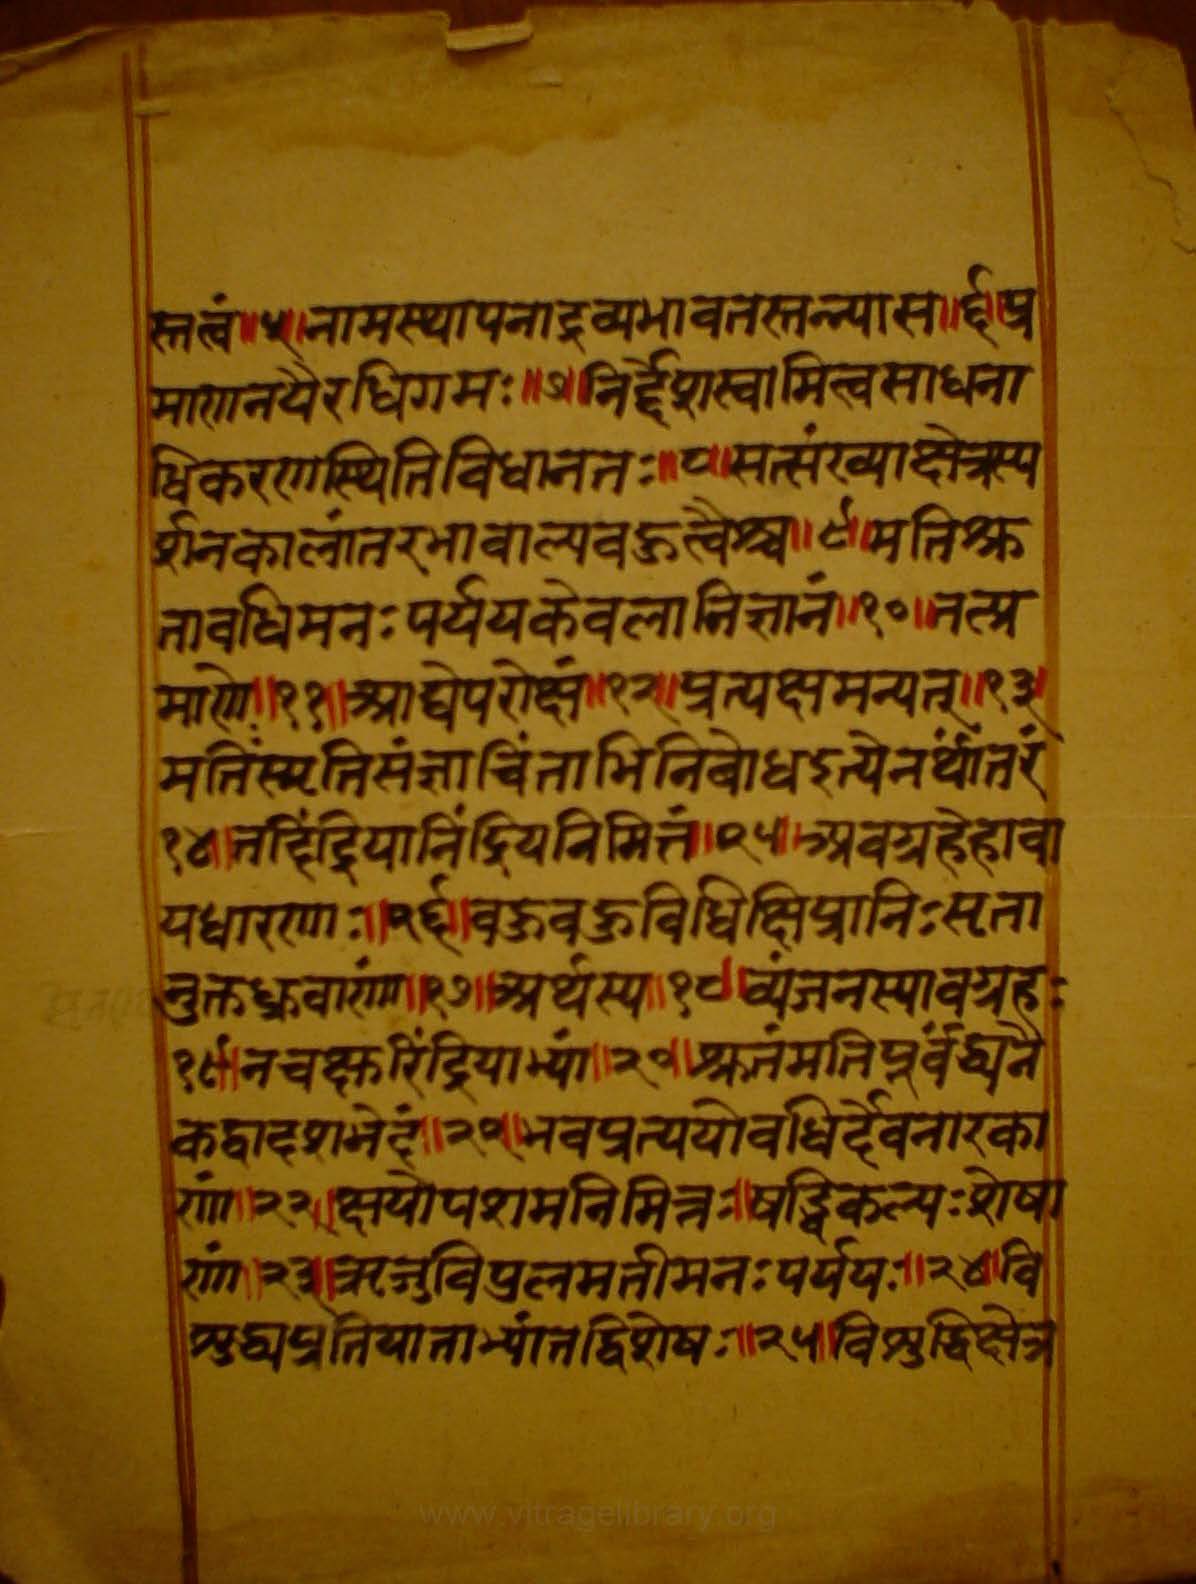 स्तत्वं॥५॥नामस्थापनाद्रव्यभावतस्तन्न्यास॥६॥प्र
माणनयैरधिगमः॥७॥निर्द्देशस्वामित्वसाधना
धिकरणस्थितिविधानतः॥८॥सत्संख्याक्षेत्रस्प
र्शनकालांतरभावाल्पबहुत्वैश्च॥९॥मतिश्रु
तावधिमनःपर्ययकेवलानिज्ञानं॥१०॥तत्प्र
माणे॥११॥आद्येपरोक्षं॥१२॥प्रत्यक्षमन्यत्॥१३॥
मतिंस्मृतिसंज्ञाचिंताभिनिबोधइत्येनर्थांतरं
१४॥तदिंद्रियानिंद्रियनिमित्तं॥१५॥अवग्रहेहावा
यधारणाः॥१६॥बहुबहुविधिक्षिप्रानिःसृता
नुक्तध्रुवाणां॥१७॥अर्थस्य॥१८॥व्यंजनस्यावग्रहः
१९॥नचक्षुरिंद्रियाभ्यां॥२०॥श्रुतंमतिपूर्वंद्व्यने
कद्वादशभेदं॥२१॥भवप्रत्ययोवधिर्देवनारका
णां॥२२॥क्षयोपशमनिमित्तः॥षड्विकल्पःशेषा
णां॥२३॥ऋजुविपुलमतीमनःपर्ययः॥२४॥वि
शुद्ध्यप्रतियाताभ्यांतद्विशेषः॥२५॥विशुद्धिक्षेत्र
www.vitragelibrary.org